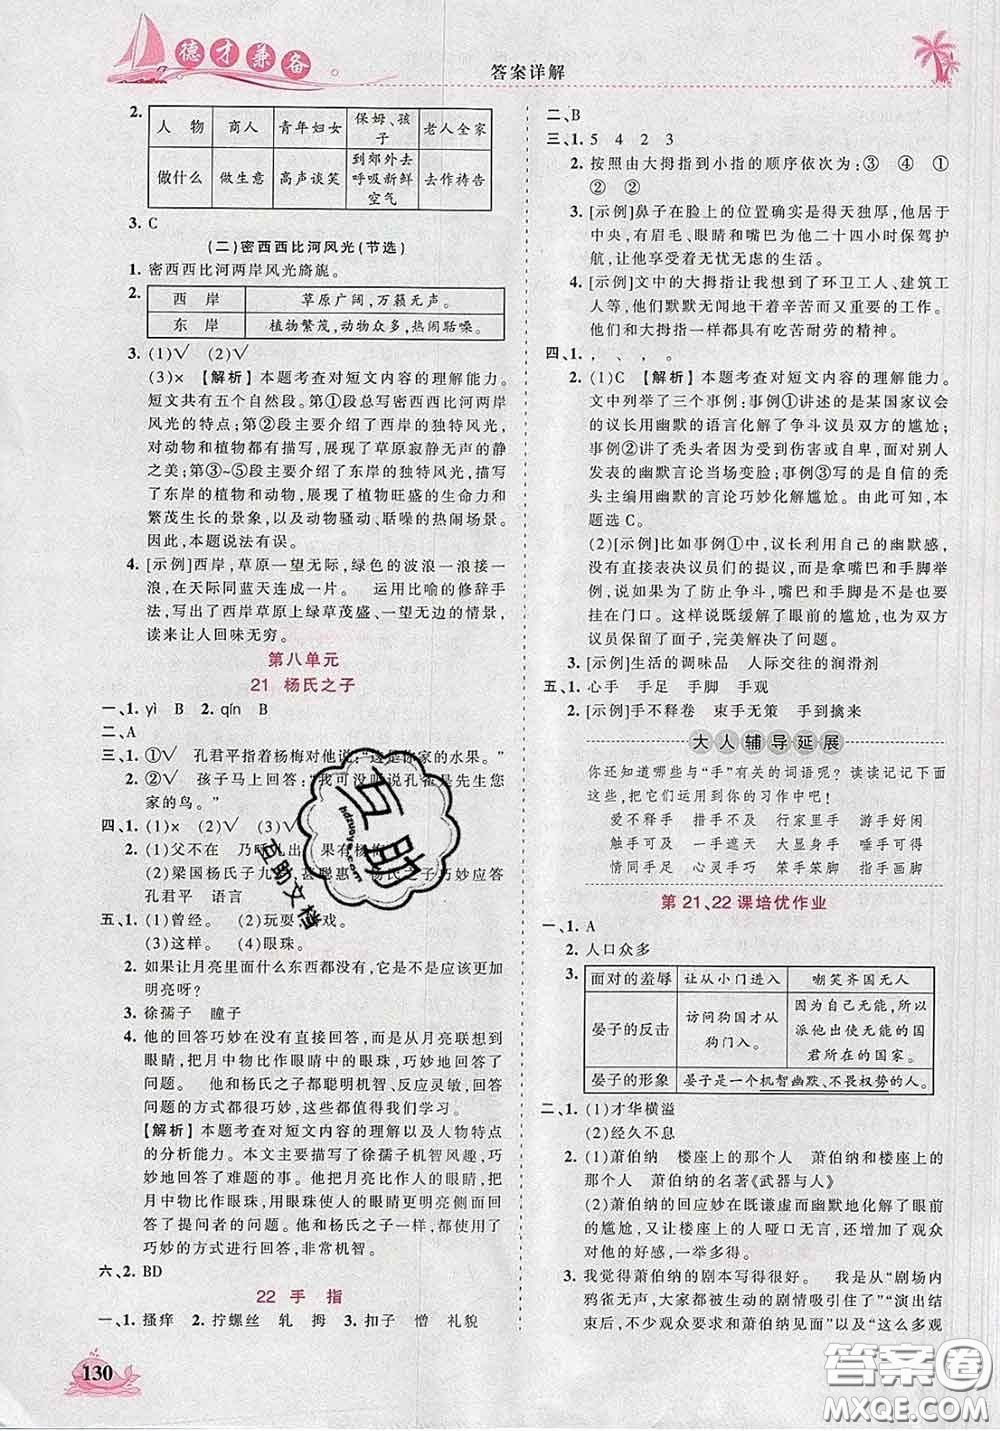 德才兼备
答案详解
2.
人 物 商人 青年妇女 保姆、孩子 老人全家
做什么 做生意 高声谈笑 到郊外去呼吸新鲜空气 去作祷告
3. C
(二)密西西比河风光(节选)
1. 密西西比河两岸风光旖旎。
2.
西 岸 草原广阔,万籁无声。
东 岸 植物繁茂,动物众多,热闹聒噪。
3. (1)√ (2)√
(3)× 【解析】本题考查对短文内容的理解能力。
短文共有五个自然段。第①段总写密西西比河两岸
风光。第②段主要介绍了西岸的独特风光,
对动物和植物都有描写,展现了草原寂静无声的静
之美;第③~⑤段主要介绍了东岸的独特风光,描写
了东岸的植物和动物,展现了植物旺盛的生命力和
繁茂生长的景象,以及动物骚动、聒噪的热闹场景。
因此,本题说法有误。
4. [示例]西岸,草原一望无际,绿色的波浪一浪接一
浪,在天际同蓝天连成一片。 运用比喻的修辞手
法,写出了西岸草原上绿草茂盛、一望无边的情景,
读来让人回味无穷。
第八单元
21 杨氏之子
一、1. yì B 2. qín B
二、A
三、1. ①√ 孔君平指着杨梅对他说:“这是你家的水果。”
2. ②√ 孩子马上回答:“我可没听说孔雀是先生您
家的鸟。”
四、1. (1)× (2)√ (3)√
2. (1)父不在 乃呼儿出 果有杨梅
(2)梁国杨氏子九岁,甚聪惠 杨氏之子巧妙应答
孔君平 语言
五、1. (1)曾经。 (2)玩耍、游戏。
(3)这样。 (4)眼珠。
2. 如果让月亮里面什么东西都没有,它是不是应该更加
明亮呀?
3. 徐孺子 瞳子
4. 他的回答巧妙在没有直接回答,而是从月亮联想到
眼睛,把月中物比作眼睛中的眼珠,巧妙地回答了
问题。 他和杨氏之子都聪明机智、反应灵敏,回答
问题的方式都很巧妙,都值得我们学习。
【解析】本题考查对短文内容的理解以及人物特点
的分析能力。本文主要描写了徐孺子机智风趣,巧
妙地回答了难题的事。他把月亮比作人的眼睛,把
月中物比作眼珠,用眼珠使人的眼睛更加明亮巧妙
回答了提问者的问题。他和杨氏之子一样,都使用
巧妙的方式进行回答,非常机智。
六、2. BD
22 手 指
一、1. 搔痒 2. 拧螺丝 轧 拇 3. 扣子 憎 礼貌
二、B
三、1. 5 4 2 3
2. 按照由大拇指到小指的顺序依次为:③ ④ ①
② ②
3. [示例]鼻子在脸上的位置确实是得天独厚,他居于
中央,有眉毛、眼睛和嘴巴为他二十四小时保驾护
航,让他享受着无忧无虑的生活。
4. [示例]文中的大拇指让我想到了环卫工人、建筑工
人等,他们默默无闻地干着辛苦而又重要的工作。
他们和大拇指一样都具有吃苦耐劳的精神。
四、1. , 、 , 。
2. (1)C 【解析】本题考查对短文内容的理解能力。
文中列举了三个事例:事例①讲述的是某国家议会
的议长用幽默的语言化解了争斗议员双方的尴尬;
事例②讲述了秃头者因为受到伤害或自卑,面对别人
发表的幽默言论当场变脸;事例③写的是自信的秃
头主编用幽默的言论巧妙化解尴尬。由此可知,本
题选C。
(2)[示例]比如事例①中,议长利用自己的幽默感,
没有直接表决议员们的提议,而是拿嘴巴和手脚举
例:如果为了防止争斗,嘴巴和手脚是不是都要
挂在门口。这样说既缓解了眼前的尴尬,也为双方
议员们保留了面子,完美解决了问题。
3. [示例]生活的调味品 人际交往的润滑剂
五、1. 心手 手足 手脚 手观
2. [示例]手不释卷 束手无策 手到擒来
大人辅导延展
你还知道哪些与“手”有关的词语呢?读读记记下面
这些,把它们运用到你的习作中吧!
爱不释手 措手不及 行家里手 游手好闲
触手可及 一手遮天 大显身手 唾手可得
情同手足 心灵手巧 笨手笨脚 指手画脚
第21、22课培优作业
一、1. A
2. 人口众多
3.
面对的羞辱 让从小门进入 嘲笑齐国无人
晏子的反击 访问狗国才从狗门入。 因为自己无能,所以派他出使无能的国君所在的国家。
晏子的形象 晏子是一个机智幽默、不畏权势的人。
二、1. (1)才华横溢
(2)经久不息
2. (1)萧伯纳 楼座上的那个人 萧伯纳和楼座上的那
个人 萧伯纳的名著《武器与人》
(2)萧伯纳的回应妙在既谦虚而幽默地化解了眼前
的尴尬,又让楼座上的人哑口无言,还增加了观众
对他的好感,一举多得。
3. 我觉得萧伯纳的剧本写得很好。 我是从“剧场内
鸦雀无声,大家都被生动的剧情吸引住了”“演出
结束后,不少观众要求和萧伯纳见面”以及“这么多观
130
互助
hdzuoye.com
互助文档
答案卷
MXQE.COM